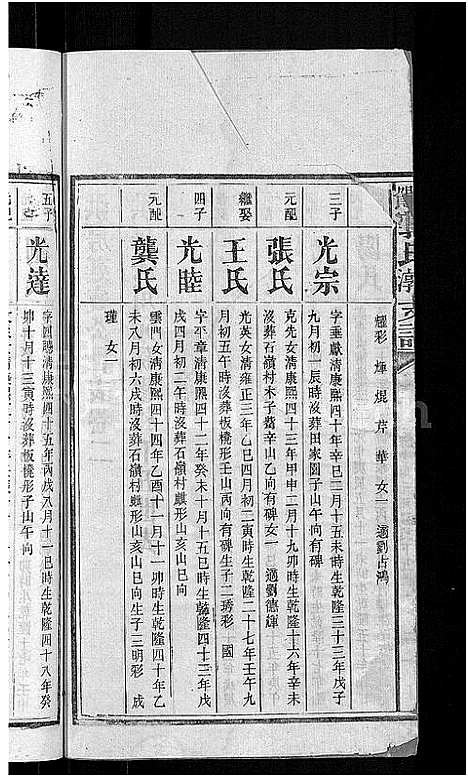 李氏
支譜
耀彩 煇 焜 芹 華 女一 適劉占鴻
三子
光宗
字垂獻清康熙四十年辛巳二月十五未時生乾隆三十三年戊子
九月初一辰時沒葬田家園子山午向
元配
張氏
克先女清康熙四十三年甲申二月十九卯時生乾隆十六年辛未
沒葬石嶺村木子觜辛山乙向有碑女一 適劉德輝
繼娶
王氏
光英女清雍正三年乙巳四月初二寅時生乾隆二十七年壬午九
月初五午時沒葬板橋形壬山丙向有碑生子二琇彩 國
四子
光睦
字平章清康熙四十二年癸未十月十五巳時生乾隆四十三年戊
戌四月初二午時沒葬石嶺村麒形山亥山巳向
元配
龔氏
雲門女清康熙四十四年乙酉十一月十一卯時生乾隆四十年乙
未八月初六戌時沒葬石嶺村麒形山亥山巳向生子三明彩 成
瑾 女一
五子
光達
字四聰清康熙四十五年丙戌八月十一巳時生乾隆四十八年癸
卯十月十三寅時沒葬板橋形子山午向